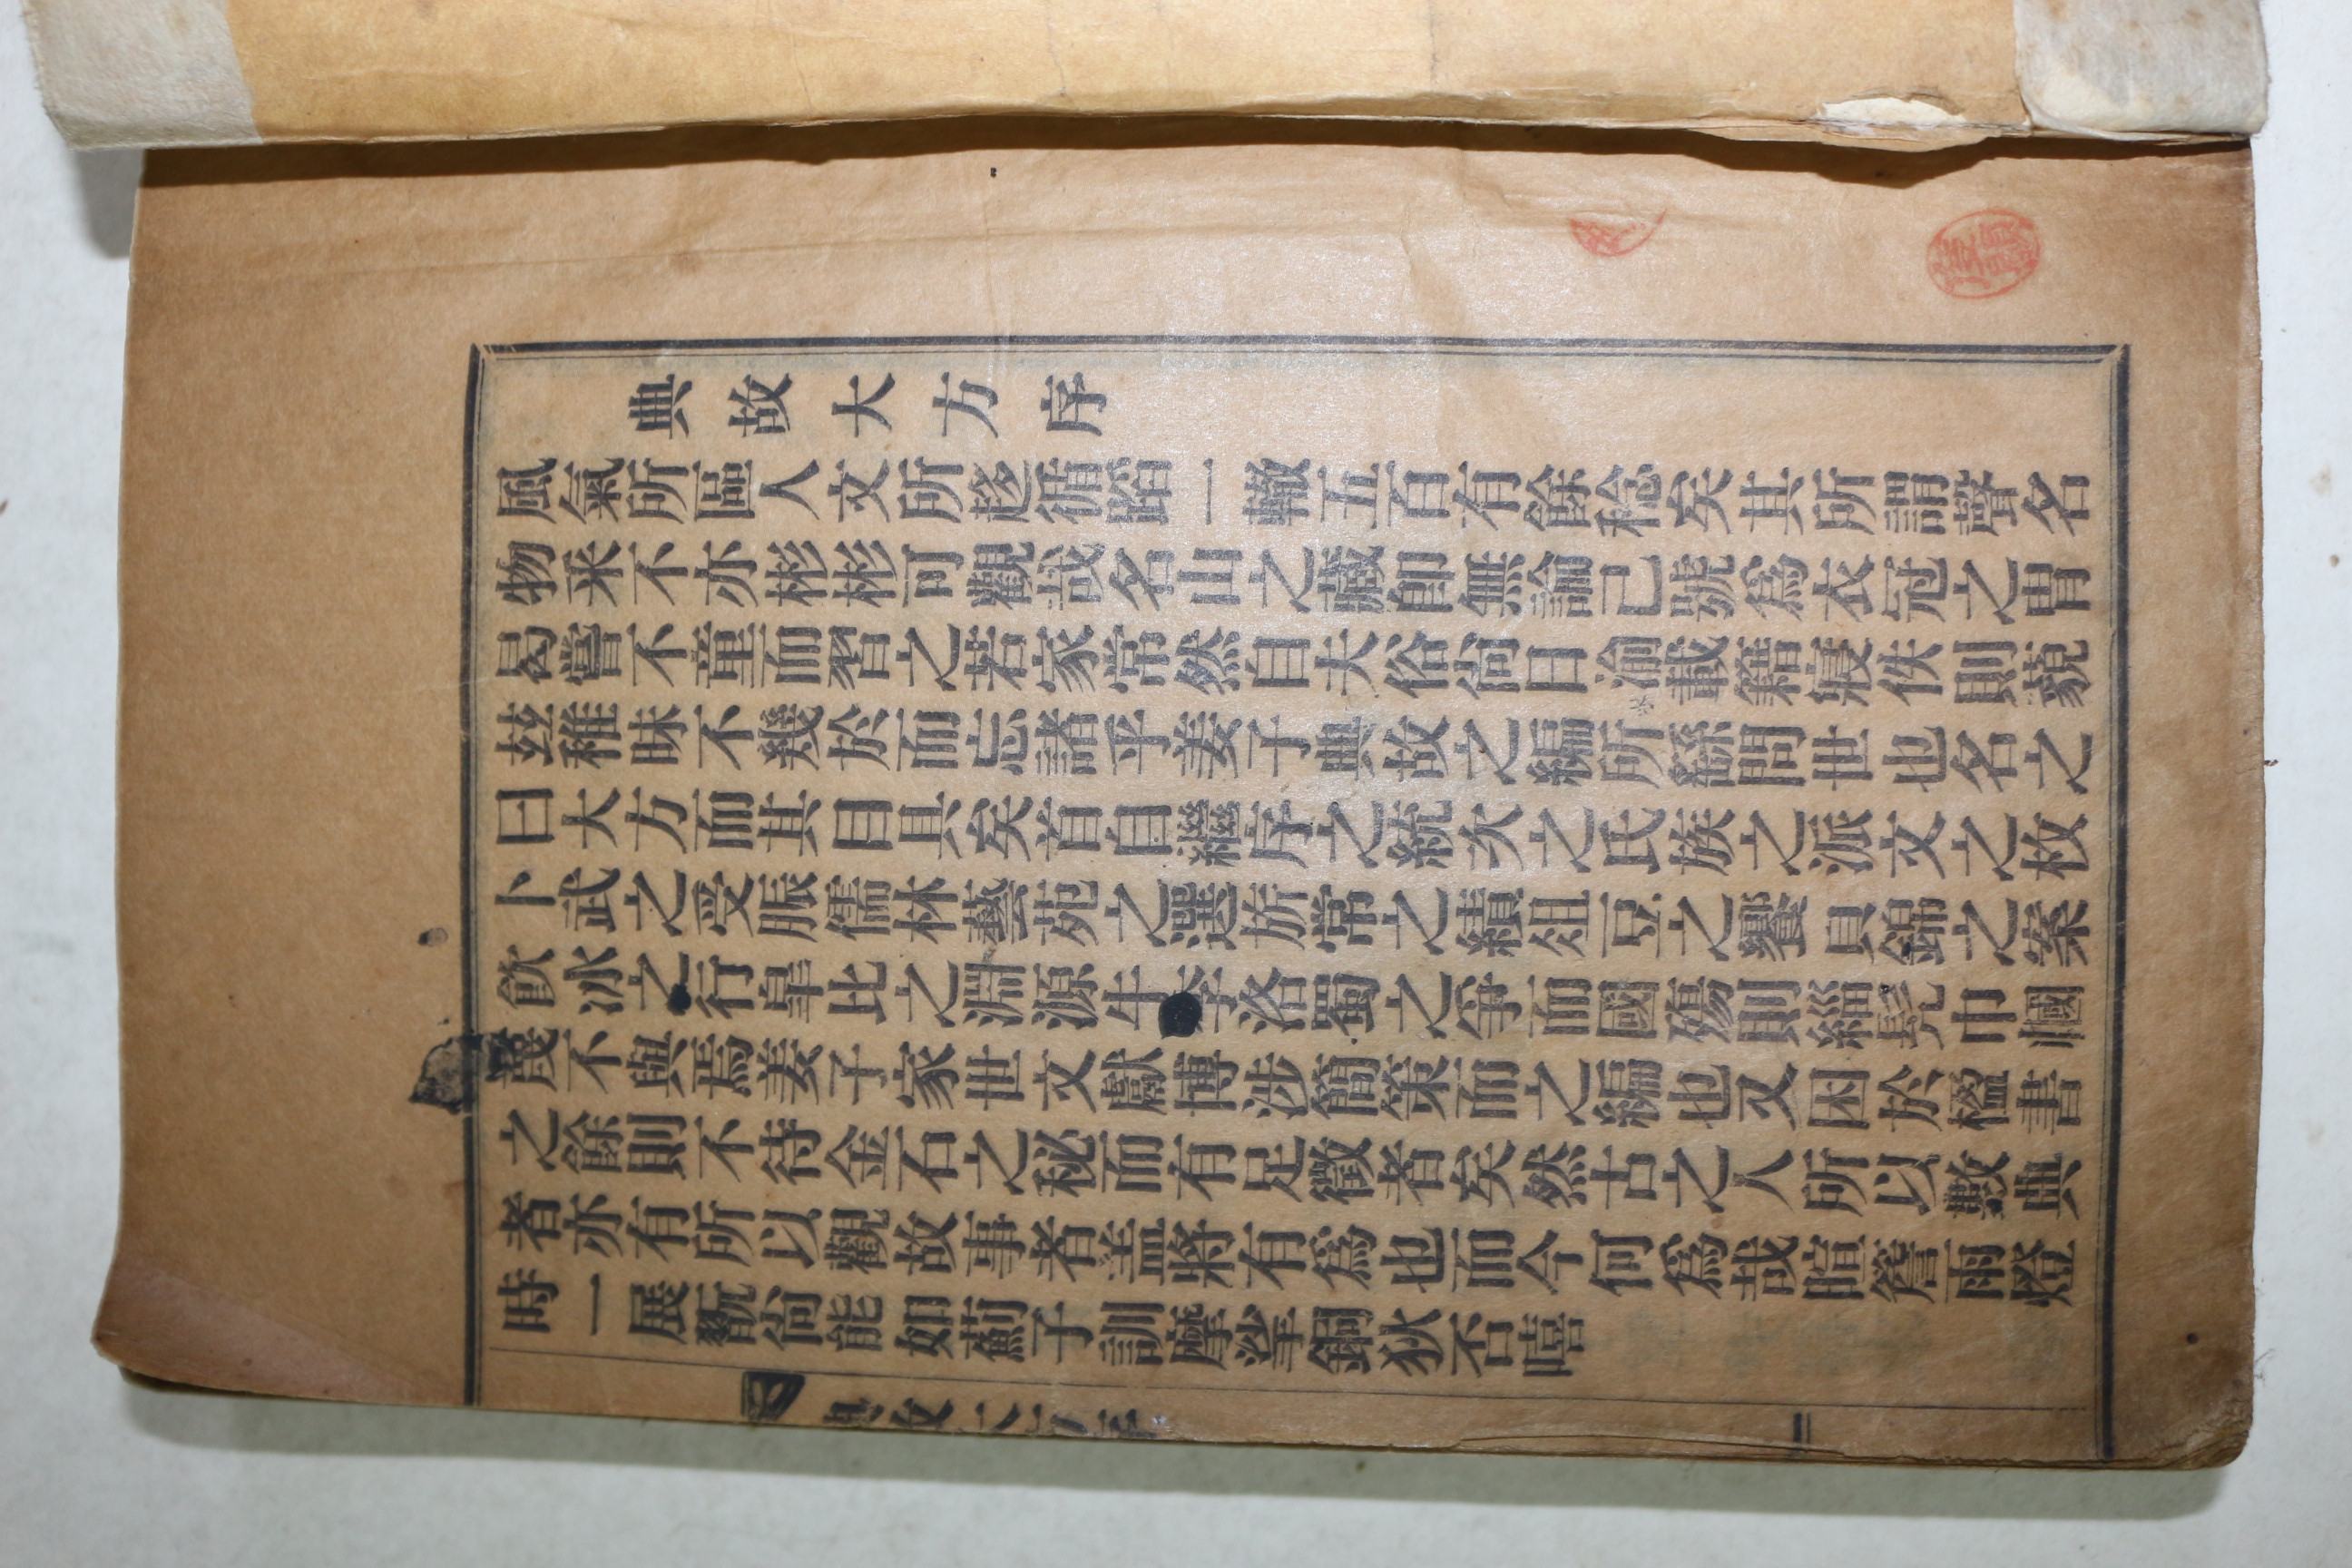 典故大方序
風氣所區人文所趍循蹈一轍五百有餘稔矣其所謂聲名
物釆不亦彬彬可觀哉名山之藏卽無論己號爲衣冠之冑
曷嘗不童而習之若家常然自夫俗尙日渝載籍寢佚則藐
玆稚昧不幾於而忘諸乎姜子典故之編所繇問世也名之
曰大方而其目具矣首自繼序之統次之氏族之派文之枚
卜武之受脤儒林藝苑之選旂常之績俎豆之饗貝錦之案
飮冰之行皐比之淵源牛李洛蜀之爭而國殤則緇髡巾幗
蔑不與焉姜子家世文獻博涉簡策而之編也又困於楹書
之餘則不待金石之秘而有足徵者矣然古之人所以數典
者亦有所以觀故事者盖將有爲也而今何爲哉暄簷雨燈
時一展翫尙能如薊子訓摩挲銅狄否嘻
典故大方序
二